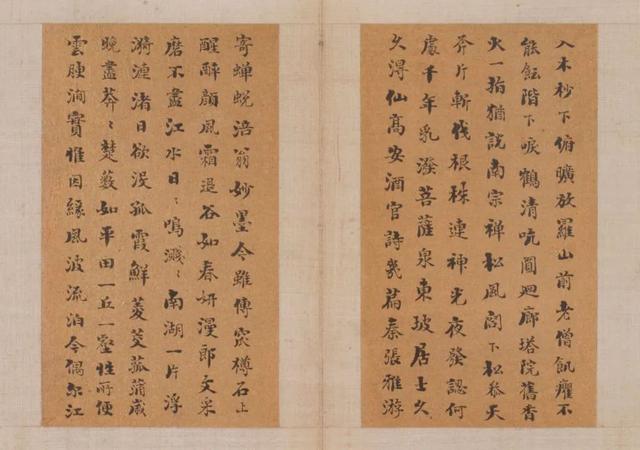 入木杪下俯曠放羅山前老僧飢癯不
能飯階下唳鶴清吭圓迴廊塔院舊香
火一指猶説南宗禪松風閣下松參天
斧斤斬伐根株連神光夜發認何
處千年乳潑菩薩泉東坡居士久
久淂仙高安酒官詩幾篇秦張雅游
寄蟬蛻涪翁妙墨今雖傳窊樽石上
醒醉顏風霜退谷如春妍漫郎文采
磨不盡江水日〻鳴濺〻南湖一片浮
漪漣渚日欲沒孤霞鮮菱芡菰蒲歲
晚盡莽〻楚薮如平田一丘一壑性所便
雲腫澗實惟因緣風波流泊今偶尔江